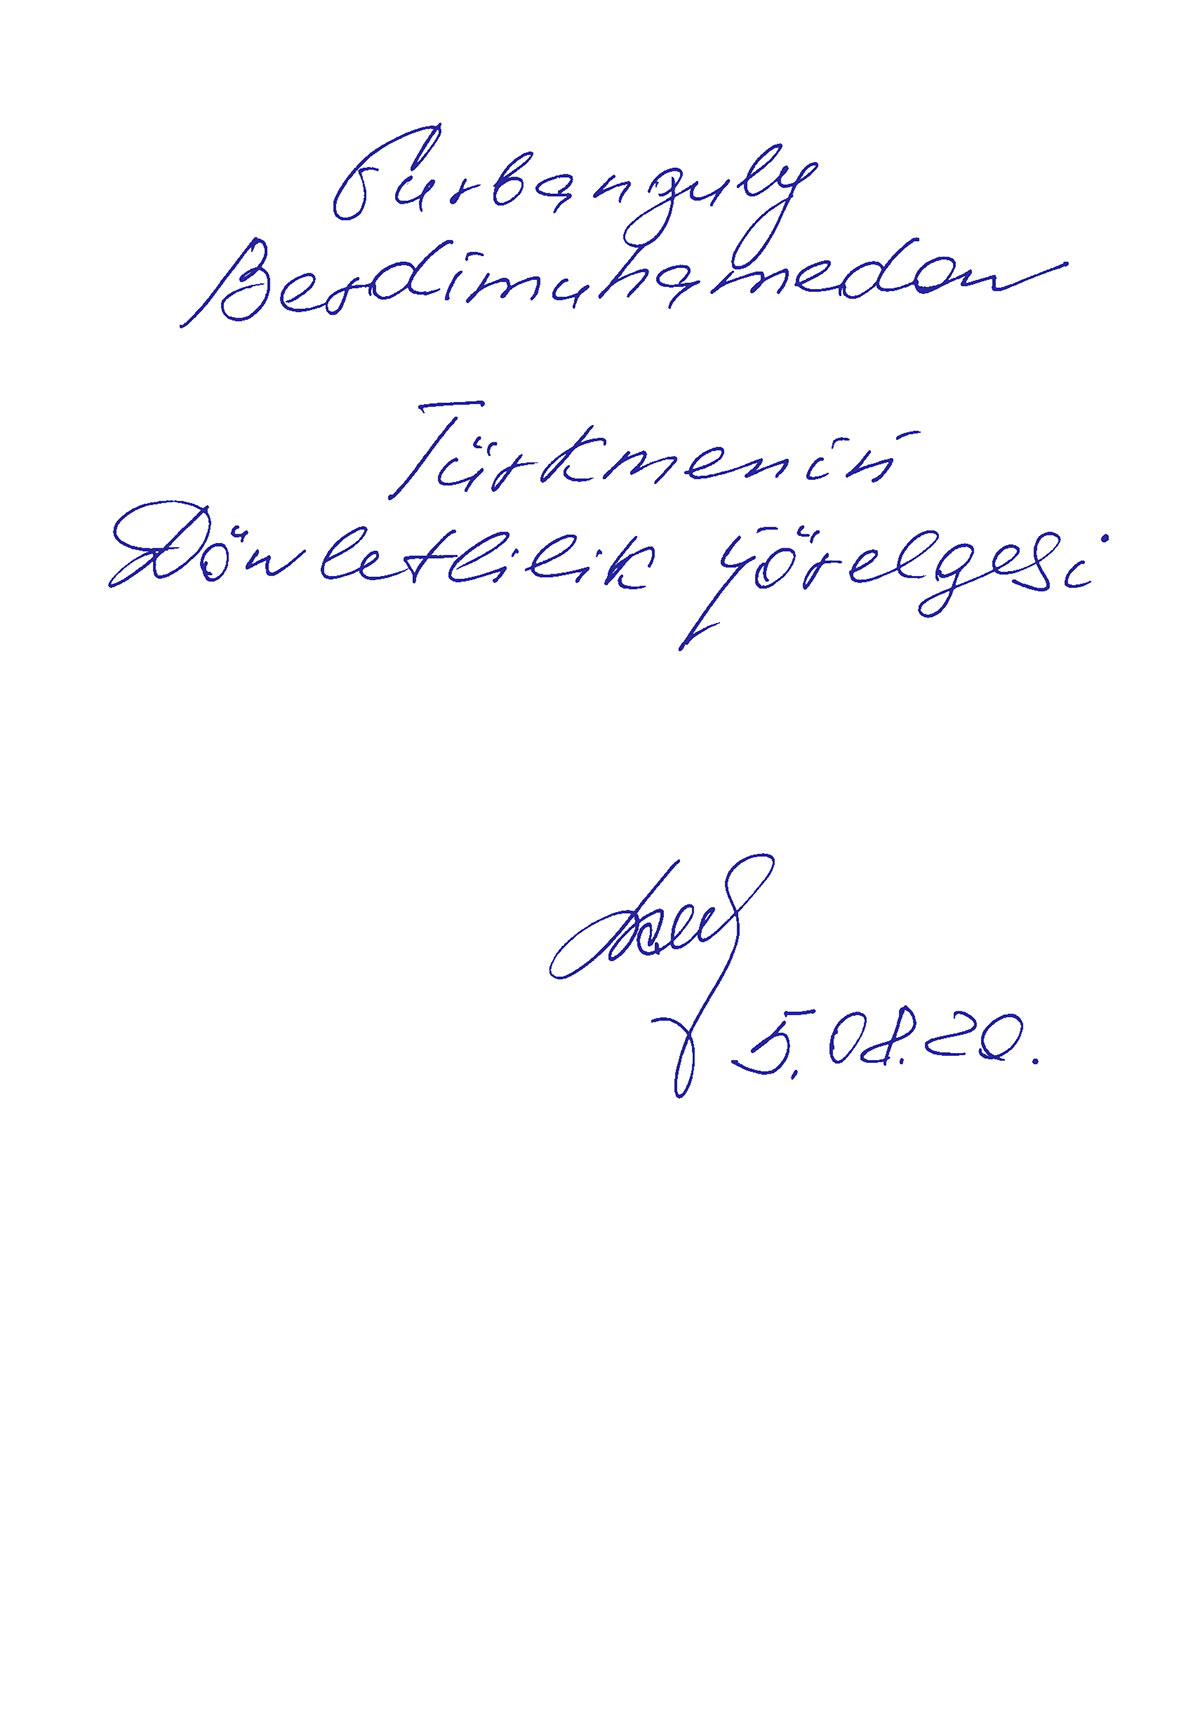 Gurbanguly
Berdimuhamedow
Türkmeniň
Döwletlilik ýörelgesi
5.08.20.